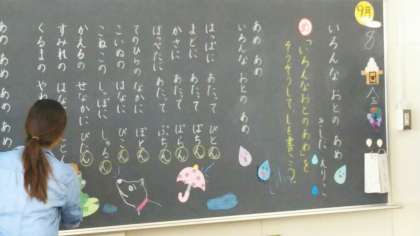 9月
8
いろんな おとの あめ
きしだ えりこ
「いろんなおとのあめ」を
そうぞうしてしを書こう。
あめ あめ
いろんな おとの あめ
はっぱに あたって ぴとん
まどに あたって ぱちん
かさに あたって ぱらん
ほっぺたに あたって ぷちん
てのひらの なかに ぽとん
こいぬの はなに ぴこん
こねこの しっぽに しゃらん
かえるの せなかに ぴたん
すみれの はなに
くるまの やね
あめ あめ あめ あめ